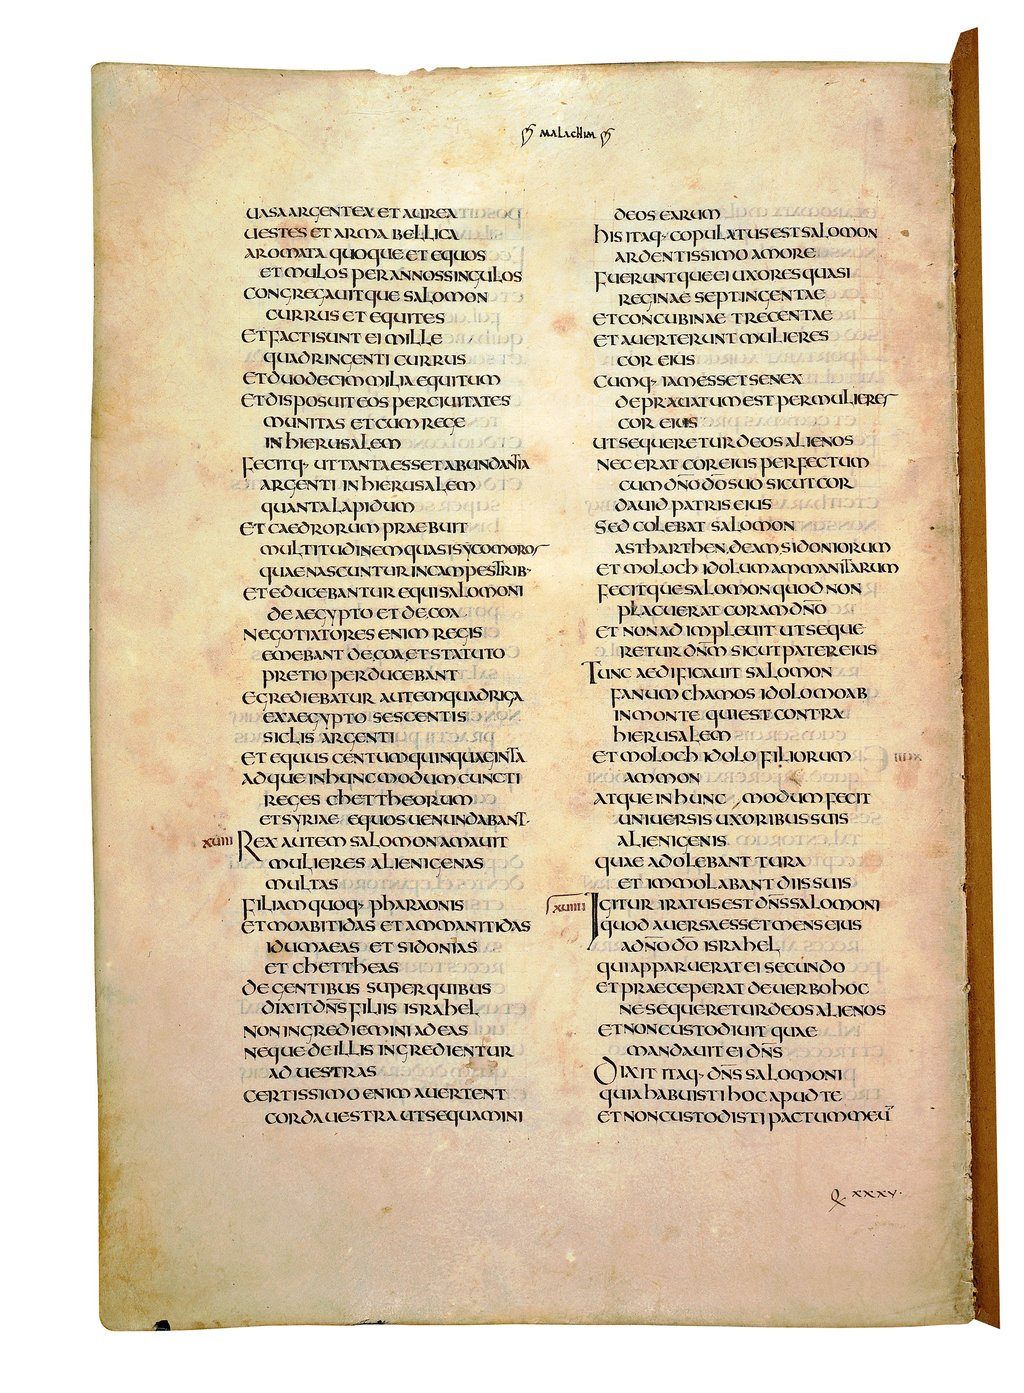 MALACHIM
UASA ARGENTEA ET AUREA
UESTES ET ARMA BELLICA
AROMATA QUOQUE ET EQUOS
ET MULOS PER ANNOS SINGULOS
CONGREGAUITQUE SALOMON
CURRUS ET EQUITES
ET FACTI SUNT EI MILLE
QUADRINGENTI CURRUS
ET DUODECIM MILIA EQUITUM
ET DISPOSUIT EOS PER CIUITATES
MUNITAS ET CUM REGE
IN HIERUSALEM
FECITQ· UT TANTA ESSET ABUNDANTIA
ARGENTI IN HIERUSALEM
QUANTA LAPIDUM
ET CAEDRORUM PRAEBUIT
MULTITUDINEM QUASI SYCOMOROS
QUAE NASCUNTUR IN CAMPESTRIB·
ET EDUCEBANTUR EQUI SALOMONI
DE AEGYPTO ET DE COA·
NEGOTIATORES ENIM REGIS
EMEBANT DE COA, ET STATUTO
PRETIO PERDUCEBANT
EGREDIEBATUR AUTEM QUADRIGA
EX AEGYPTO SESCENTIS
SICLIS ARGENTI
ET EQUUS CENTUM QUINQUAGINTA
ADQUE IN HUNC MODUM CUNCTI
REGES CHETTHEORUM
ET SYRIAE EQUOS UENUNDABANT·
XUIII REX AUTEM SALOMON AMAUIT
MULIERES ALIENIGENAS
MULTAS
FILIAM QUOQ· PHARAONIS
ET MOABITIDAS ET AMMANITIDAS
IDUMAEAS ET SIDONIAS
ET CHETTHEAS
DE GENTIBUS SUPER QUIBUS
DIXIT DN̄S FILIIS ISRAHEL
NON INGREDIEMINI AD EAS
NEQUE DE ILLIS INGREDIENTUR
AD UESTRAS
CERTISSIMO ENIM AUERTENT
CORDA UESTRA UT SEQUAMINI
DEOS EARUM
HIS ITAQ· COPULATUS EST SALOMON
ARDENTISSIMO AMORE
FUERUNTQUE EI UXORES QUASI
REGINAE SEPTINGENTAE
ET CONCUBINAE TRECENTAE
ET AUERTERUNT MULIERES
COR EIUS
CUMQ· IAM ESSET SENEX
DEPRAUATUM EST PER MULIERES
COR EIUS
UT SEQUERETUR DEOS ALIENOS
NEC ERAT COR EIUS PERFECTUM
CUM DN̄O DŌ SUO SICUT COR
DAUID PATRIS EIUS
SED COLEBAT SALOMON
ASTHARTHEN, DEAM, SIDONIORUM
ET MOLOCH IDOLUM AMMANITARUM
FECITQUE SALOMON QUOD NON
PLACUERAT CORAM DN̄O
ET NON ADIMPLEUIT UT SEQUE
RETUR DN̄M SICUT PATER EIUS
TUNC AEDIFICAUIT SALOMON
FANUM CHAMOS IDOLO MOAB
IN MONTE QUI EST CONTRA
HIERUSALEM
ET MOLOCH IDOLO FILIORUM
AMMON
ATQUE IN HUNC MODUM FECIT
UNIUERSIS UXORIBUS SUIS
ALIENIGENIS
QUAE ADOLEBANT TURA
ET IMMOLABANT DIIS SUIS
XUIIII IGITUR IRATUS EST DN̄S SALOMONI
QUOD AUERSA ESSET MENS EIUS
A DN̄O DŌ ISRAHEL
QUI APPARUERAT EI SECUNDO
ET PRAECEPERAT DE UERBO HOC
NE SEQUERETUR DEOS ALIENOS
ET NON CUSTODIUIT QUAE
MANDAUIT EI DN̄S
DIXIT ITAQ· DN̄S SALOMONI
QUIA HABUISTI HOC APUD TE
ET NON CUSTODISTI PACTUM MEŪ
Q XXXV·